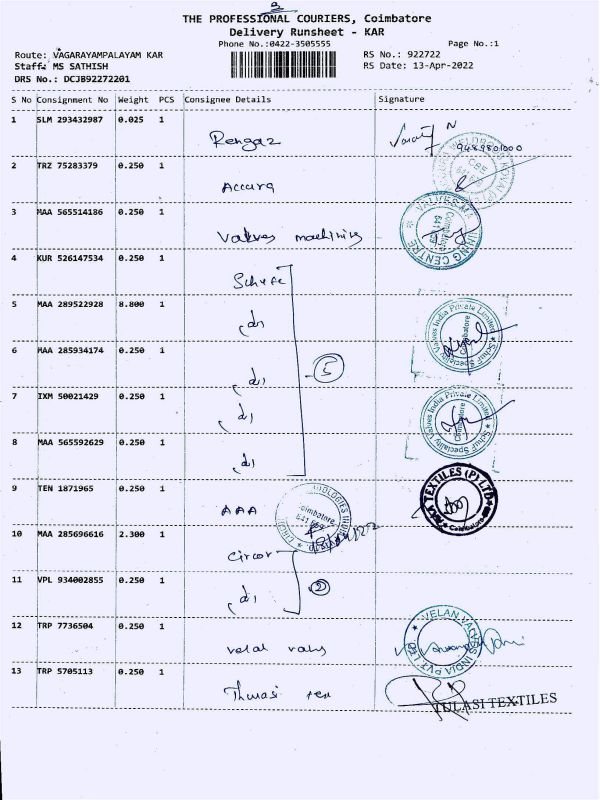 THE PROFESSIONAL COURIERS, Coimbatore
Delivery Runsheet - KAR
Phone No.:0422-3505555
Page No.:1
Route: VAGARAYAMPALAYAM KAR
RS No.: 922722
Staff: MS SATHISH
RS Date: 13-Apr-2022
DRS No.: DCJB92272201
S No Consignment No Weight PCS Consignee Details Signature
1 SLM 293432987 0.025 1
9489801000
2 TRZ 75283379 0.250 1 Accura
3 MAA 565514186 0.250 1 Valves machining
VALVES MACHINING CENTRE
4 KUR 526147534 0.250 1
5 MAA 289522928 8.800 1
Schuf Speciality Valves India Private Limited
Coimbatore
6 MAA 285934174 0.250 1
5
7 IXM 50021429 0.250 1
Schuf Speciality Valves India Private Limited
Coimbatore
8 MAA 565592629 0.250 1
9 TEN 1871965 0.250 1 AAA
TEXTILES (P) LTD
Coimbatore
Coimbatore
10 MAA 285696616 2.300 1 Circor
11 VPL 934002855 0.250 1
2
12 TRP 7736504 0.250 1
VELAN VALVES INDIA PVT LTD
13 TRP 5705113 0.250 1
TULASI TEXTILES